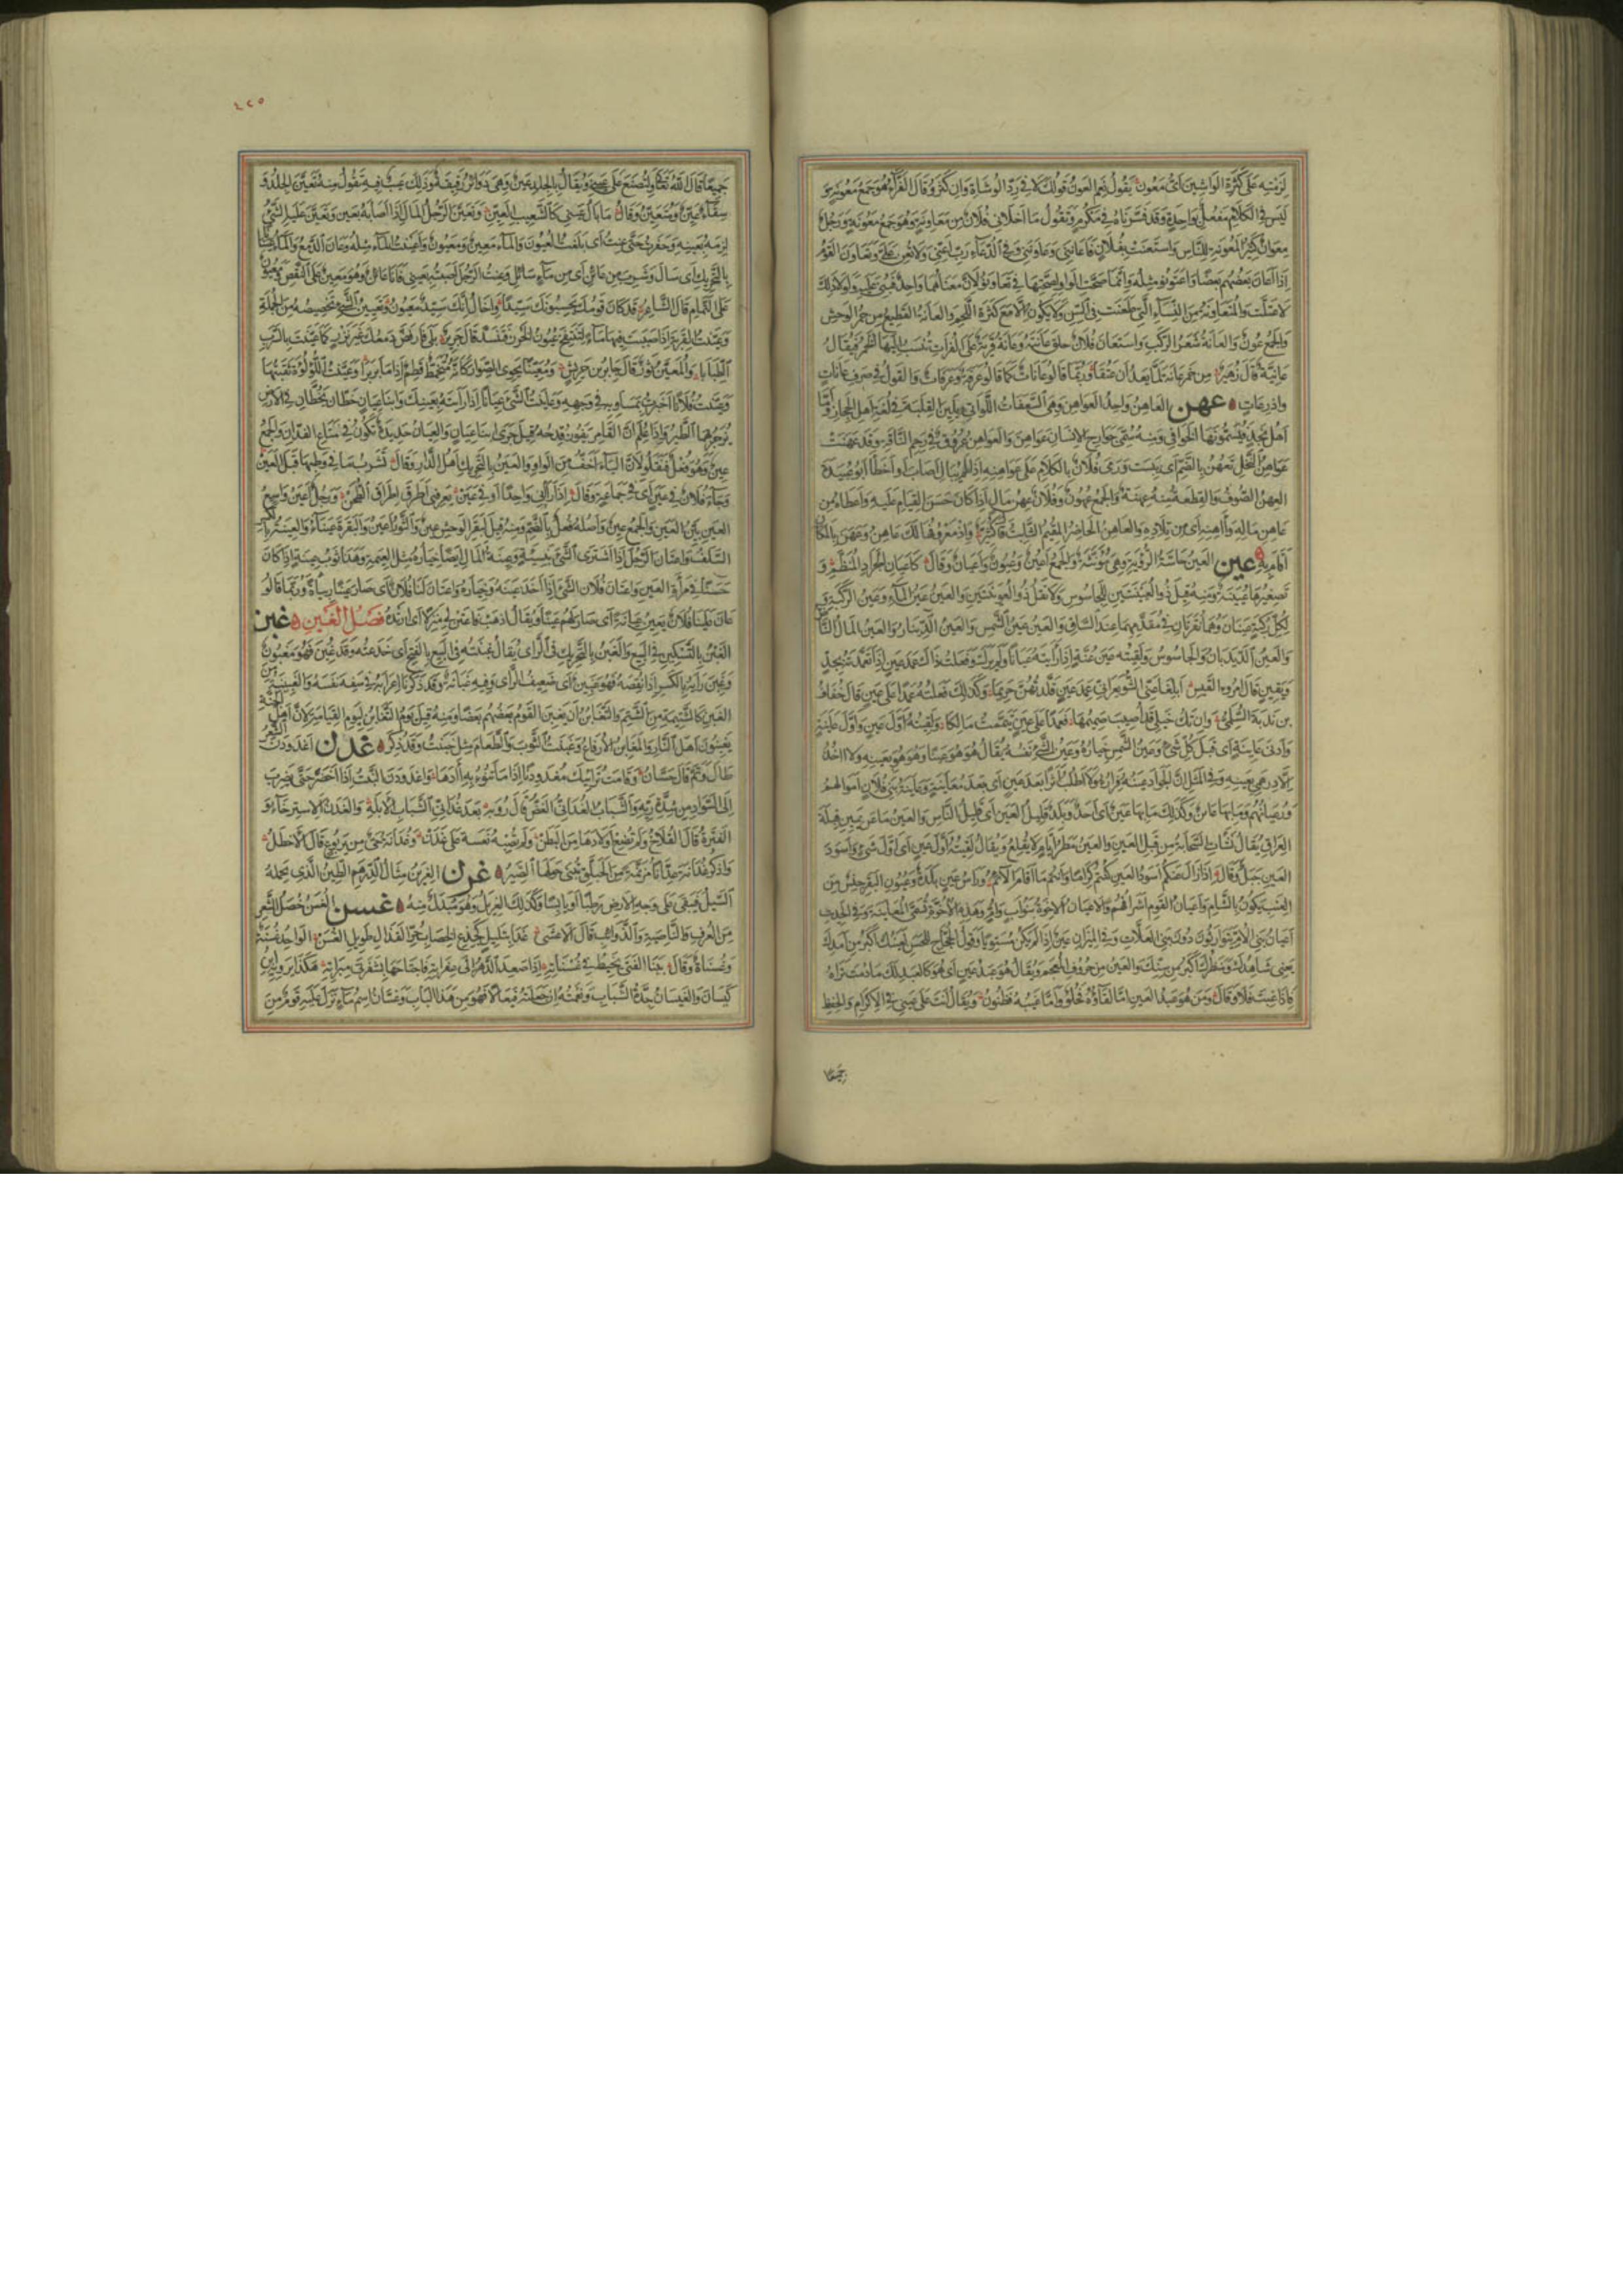 لزمته على كثرة الواشين أي معون يقول نعم العون قولك لا في رد الوشاة وان كثروا وقال الفراء هو جمع معونة و
ليس في الكلام مفعل بواحدة وقد فسرناه في مكرم وتقول ما اخلاني فلان من معاونه وهو جمع معونة ورجل
معوان كثير المعونة للناس واستعنت بفلان فاعانني وعاونني وفي الدعاء رب اعني ولا تعن علي وتعاون القوم
اذا اعان بعضهم بعضا واعتونوا مثله وانما صحت الواو لصحتها في تعاونوا لان معناهما واحد فبني عليه ولولا ذلك
لاعتلت والمتعاونة من النساء التي طعنت في السن ولا يكون الا مع كثرة اللحم والعانة القطيع من حمر الوحش
والجمع عون والعانة شعر الركب واستعان فلان حلق عانته وعانة قرية على الفرات تنسب اليها الخمر فيقال
عانية قال زهير من خمر عانة لما يعد ان عتقا وربما قالوا عانات كما قالوا عرفة وعرفات والقول في صرف عانات
واذرعات عهن العاهن واحد العواهن وهي السعفات اللواتي يلين القلبة في لغة اهل الحجاز وأما
اهل نجد فيسمونها الخوافي ومنه سمي جوارح الانسان عواهن والعواهن عروق في رحم الناقة وقد عهنت
عواهن النخل تعهن بالضم أي يبست ورمى فلان بالكلام على عواهنه اذا لم يبال اصاب أو اخطأ ابو عبيدة
العهن الصوف والقطعة منه عهنة والجمع عهون وفلان عهن مال اذا كان حسن القيام عليه واعطاه من
عاهن ماله وآهنه أي من تلاده والعاهن الحاضر المقيم الثابت قال كثير واذ معروفها لك عاهن وعهن بالمكان
أقام به عين العين حاسة الرؤية وهي مؤنثة والجمع اعين وعيون واعيان وقال كاعيان الجراد المنظم و
تصغيرها عيينة ومنه قيل ذو العيينتين للجاسوس ولا تقل ذو العوينتين والعين عين الماء وعين الركبة و
لكل ركبة عينان وهما نقرتان في مقدمهما عند الساق والعين عين الشمس والعين الدينار والعين المال الناض
والعين الديدبان والجاسوس ولقيته عين عنة اذا رأيته عيانا ولم يرك وفعلت ذاك عمد عين اذا تعمدته بجد
ويقين قال امرؤ القيس ابلغا عني الشويعر اني عمد عين قلدتهن حريما وكذلك فعلته عمدا على عين قال خفاف
بن ندبة السلمي وان تك خيلي قد أصيب صميمها فعمدا على عين تيممت مالكا ولقيته أول عين واول عاينة
وأدنى عاينة أي قبل كل شيء وعين الشيء خياره وعين الشيء نفسه يقال هو هو عينا وهو هو بعينه ولا آخذ
الا درهمي بعينه وفي المثل ان الجواد عينه فراره ولا اطلب أثرا بعد عين أي بعد معاينة وعاينة بني فلان اموالهم
ورعيانهم وما بها عائن وكذلك ما بها عين أي احد وبلد قليل العين أي قليل الناس والعين ما عن يمين قبلة
العراق يقال نشأت السحابة من قبل العين والعين مطر أيام لا يقلع ويقال لقيته أول عين أي اول شيء واسود
العين جبل وقال اذا زال عنكم أسود العين كنتم كراما وانتم ما أقام الائم ورأس عين بلدة وعيون البقر جنس من
العنب يكون بالشام واعيان القوم أشرافهم والاعيان الاخوة بنو أب وأم وهذه الاخوة تسمى المعاينة وفي الحديث
أعيان بني الام يتوارثون دون بني العلات وفي الميزان عين اذا لم يكن مستويا وقول الحجاج للحسن لعينك اكبر من أمدك
يعني شاهدك ومنظرك اكبر من سنك والعين من حروف المعجم ويقال هو عبد عين أي هو كالعبد لك ما دمت تراه
فاذا غبت فلا وقال ومن هو عبد العين اما لقاؤه فحلو وأما غيبه فظنون ويقال انت على عيني في الاكرام والحفظ
جميعا
٤٢٥
جميعا قال الله تعالى ولتصنع على عيني ويقال بالجلد عين وهي دوائر رقيقة وذلك عيب فيه تقول منه تعين الجلد و
سقاء عين ومتعين وقال ما بال عيني كالشعيب العين وتعين الرجل المال اذا اصابه بعين وتعين عليه الشيء
لزمه بعينه وحفرت حتى عنت أي بلغت العيون والماء معين ومعيون وأعينت الماء مثله وعان الدمع والماء عينانا
بالتحريك أي سال وشرب من عائن أي من ماء سائل وعنت الرجل اصبته بعيني فانا عائن وهو معين على النقص ومعيون
على التمام قال الشاعر قد كان قومك يحسبونك سيدا واخال انك سيد معيون وتعيين الشيء تخصيصه من الجملة
وعينت القربة اذا صببت فيها ماء لتنتفخ عيون الخرز فتنسد قال جرير بلى فارفض دمعك غير نزر كما عينت بالسرب
الطبابا والمعين ثور قال جابر بن حريش ومعينا يحوي الصوار كانه متخمط قطم اذا ما بربرا وعينت اللؤلؤة ثقبتها
وعينت فلانا اخبرت بمساويه في وجهه وعاينت الشيء عيانا اذا رأيته بعينك وابنا عيان خطان يخطان في الارض
يزجر بهما الطير واذا علم ان القامر يفوز قدحه قيل جرى ابنا عيان والعيان حديدة تكون في متاع الفدان والجمع
عين وهو فعل فثقلوا لان الياء اخف من الواو والعين بالتحريك أهل الدار وقال تشرب ما في وطبها قبل العين
وجاء فلان في عين أي في جماعة وقال اذا رآني واحدا أو في عين يعرفني أطرق اطراق الطحن ورجل أعين واسع
العين بين العين والجمع عين وأصله فعل بالضم ومنه قيل لبقر الوحش عين والثور أعين والبقرة عيناء والعينة بالكسر
السلف واعتان الرجل اذا اشترى الشيء بنسيئة وعينة المال ايضا خياره مثل العيمة وهذا ثوب عينة اذا كان
حسنا في مرآة العين واعتان فلان الشيء اذا اخذ عينه وخياره واعتان لنا فلان أي صار عينا ربيئة وربما قالوا
عان علينا فلان يعين عيانة أي صار لهم عينا ويقال اذهب فاعتن لي منزلا أي ارتده فصل الغين غبن
الغبن بالتسكين في البيع والغبن بالتحريك في الرأي يقال غبنته في البيع بالفتح أي خدعته وقد غبن فهو مغبون
وغبن رأيه بالكسر اذا نقصه فهو غبين أي ضعيف الرأي وفيه غبانة وقد ذكرنا اعرابه في سفه نفسه والغبينة من
الغبن كالشتيمة من الشتم والتغابن أن يغبن القوم بعضهم بعضا ومنه قيل يوم التغابن ليوم القيامة لان اهل الجنة
يغبنون اهل النار والمغابن الأرفاغ وغبنت الثوب والطعام مثل خبنت وقد ذكر غدن اغدودن الشعر
طال وتم قال حسان وقامت ترائيك مغدودنا اذا ما تنوء به آدها واغدودن النبت اذا اخضر حتى يضرب
الى السواد من شدة ريه والشباب الغداني الغض قال رؤبة بعد غداني الشباب الأبله والغدن الاسترخاء و
الفترة قال القلاخ ولم تضع أولادها من البطن ولم تصبه نعسة على غدن وغدانة حي من يربوع قال الأخطل
واذكر غدانة عدانا مزنمة من الحبلق تبنى حولها الصير غرن الغرين مثال الدرهم الطين الذي يحمله
السيل فيبقى على وجه الارض رطبا أو يابسا وكذلك الغريل وهو مبدل منه غسن الغسن خصل الشعر
من العرف والناصية والذوائب قال الأعشى غدا بتليل كجذع الخضاب حر القذال طويل الغسن الواحد غسنة
وغسناة وقال بينا الفتى يخبط في غسناته اذ صعد الدهر الى عفراته فاجتاحها بشفرتي مبراته هكذا يرويه ابن
كيسان والغيسان حدة الشباب ونعمته ان جعلته فيعالا فهو من هذا الباب وغسان اسم ماء نزل عليه قوم من